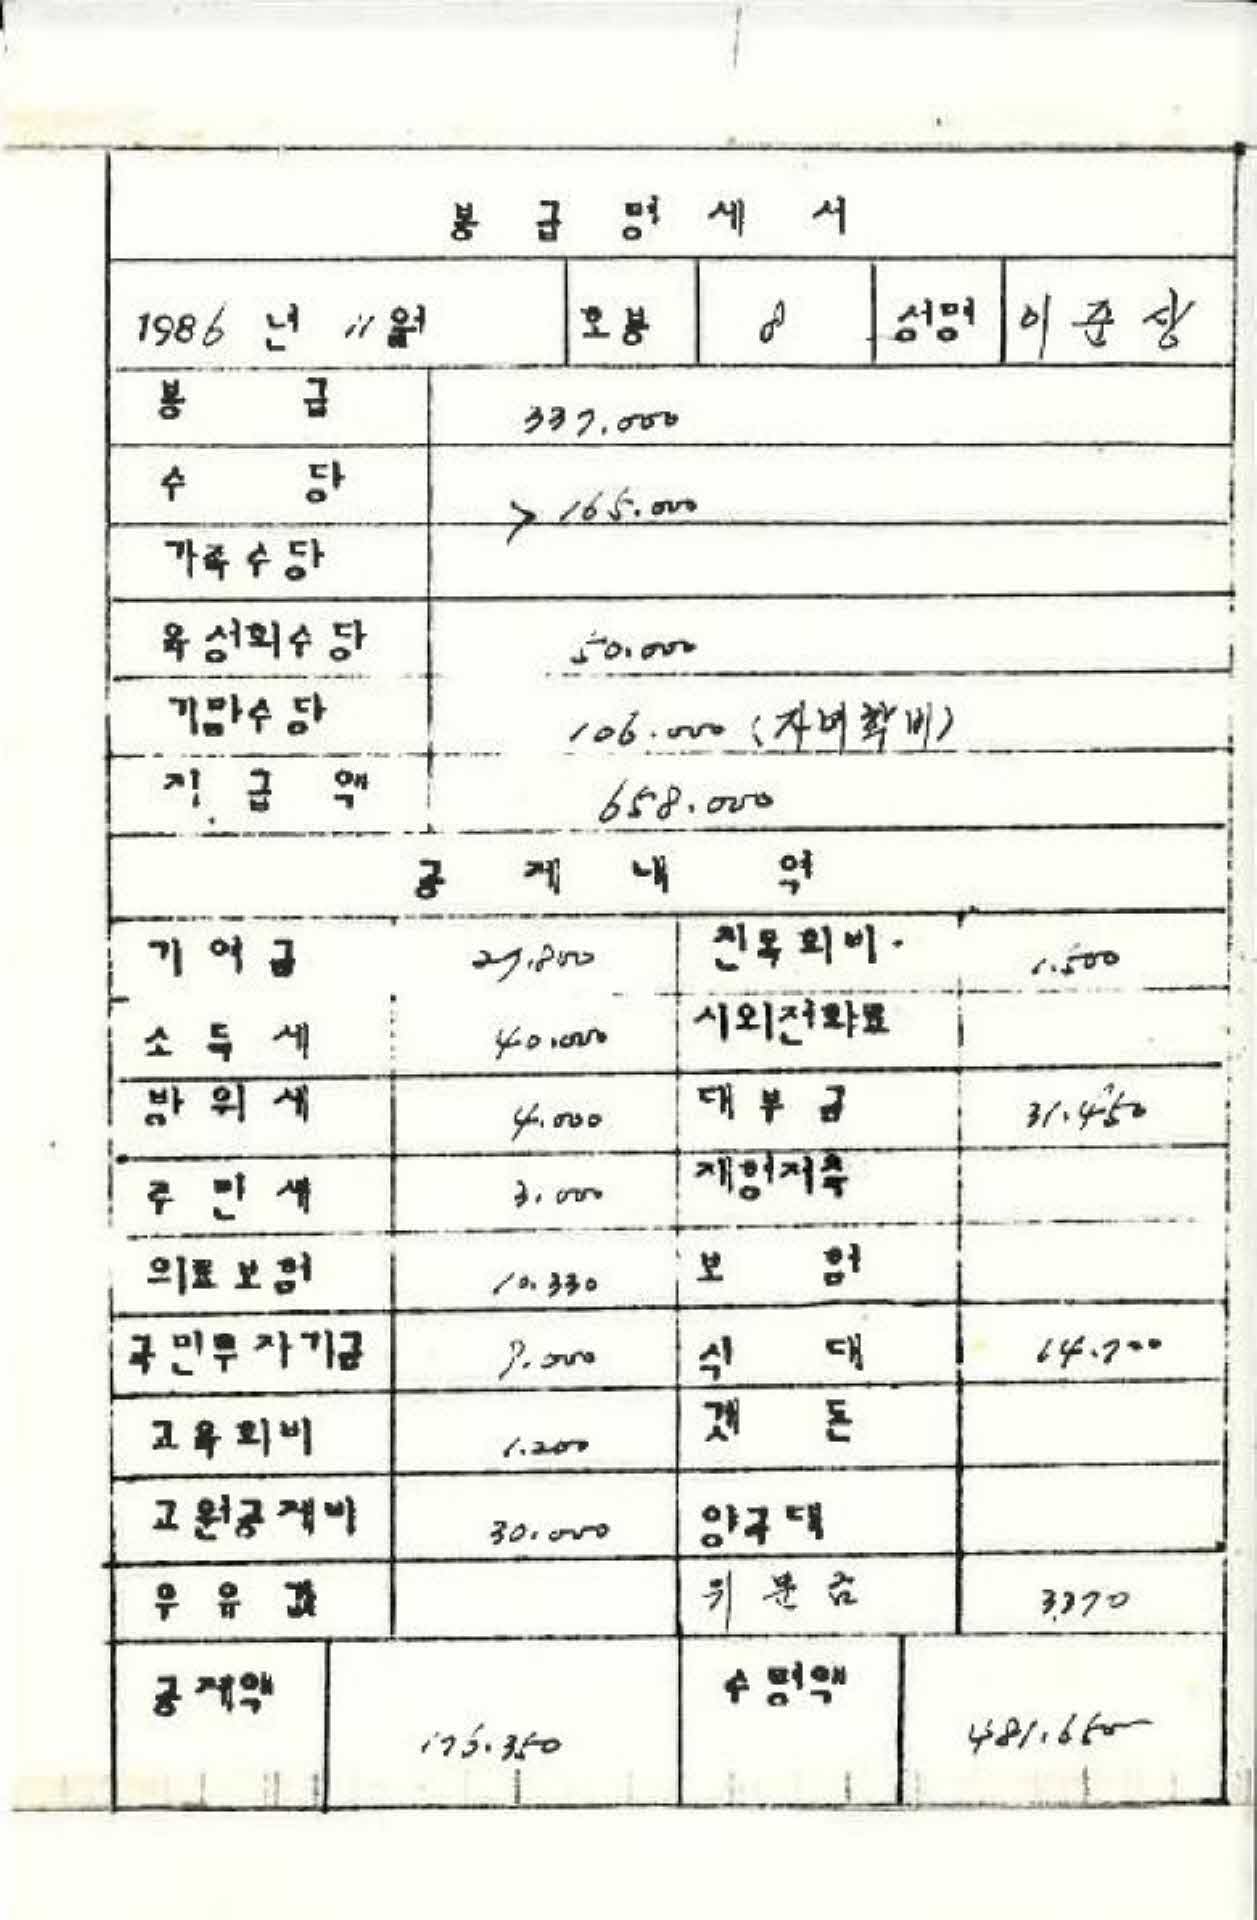 봉급명세서
1986년 11월 호봉 8 성명 이준상
봉급 337.000
수당 > 165.000
가족수당
육성회수당 50.000
기말수당 106.000 (자녀학비)
지급액 658.000
공제내역
기여금 29.800 친목회비 1.500
소득세 40.000 시외전화료
방위세 4.000 대부금 31.450
주민세 3.000 재형저축
의료보험 10.330 보험
국민투자기금 9.000 식대 14.700
교육회비 1.200 곗돈
교원공제비 30.000 양곡대
우유값 3370
공제액 176.350 수령액 481.650